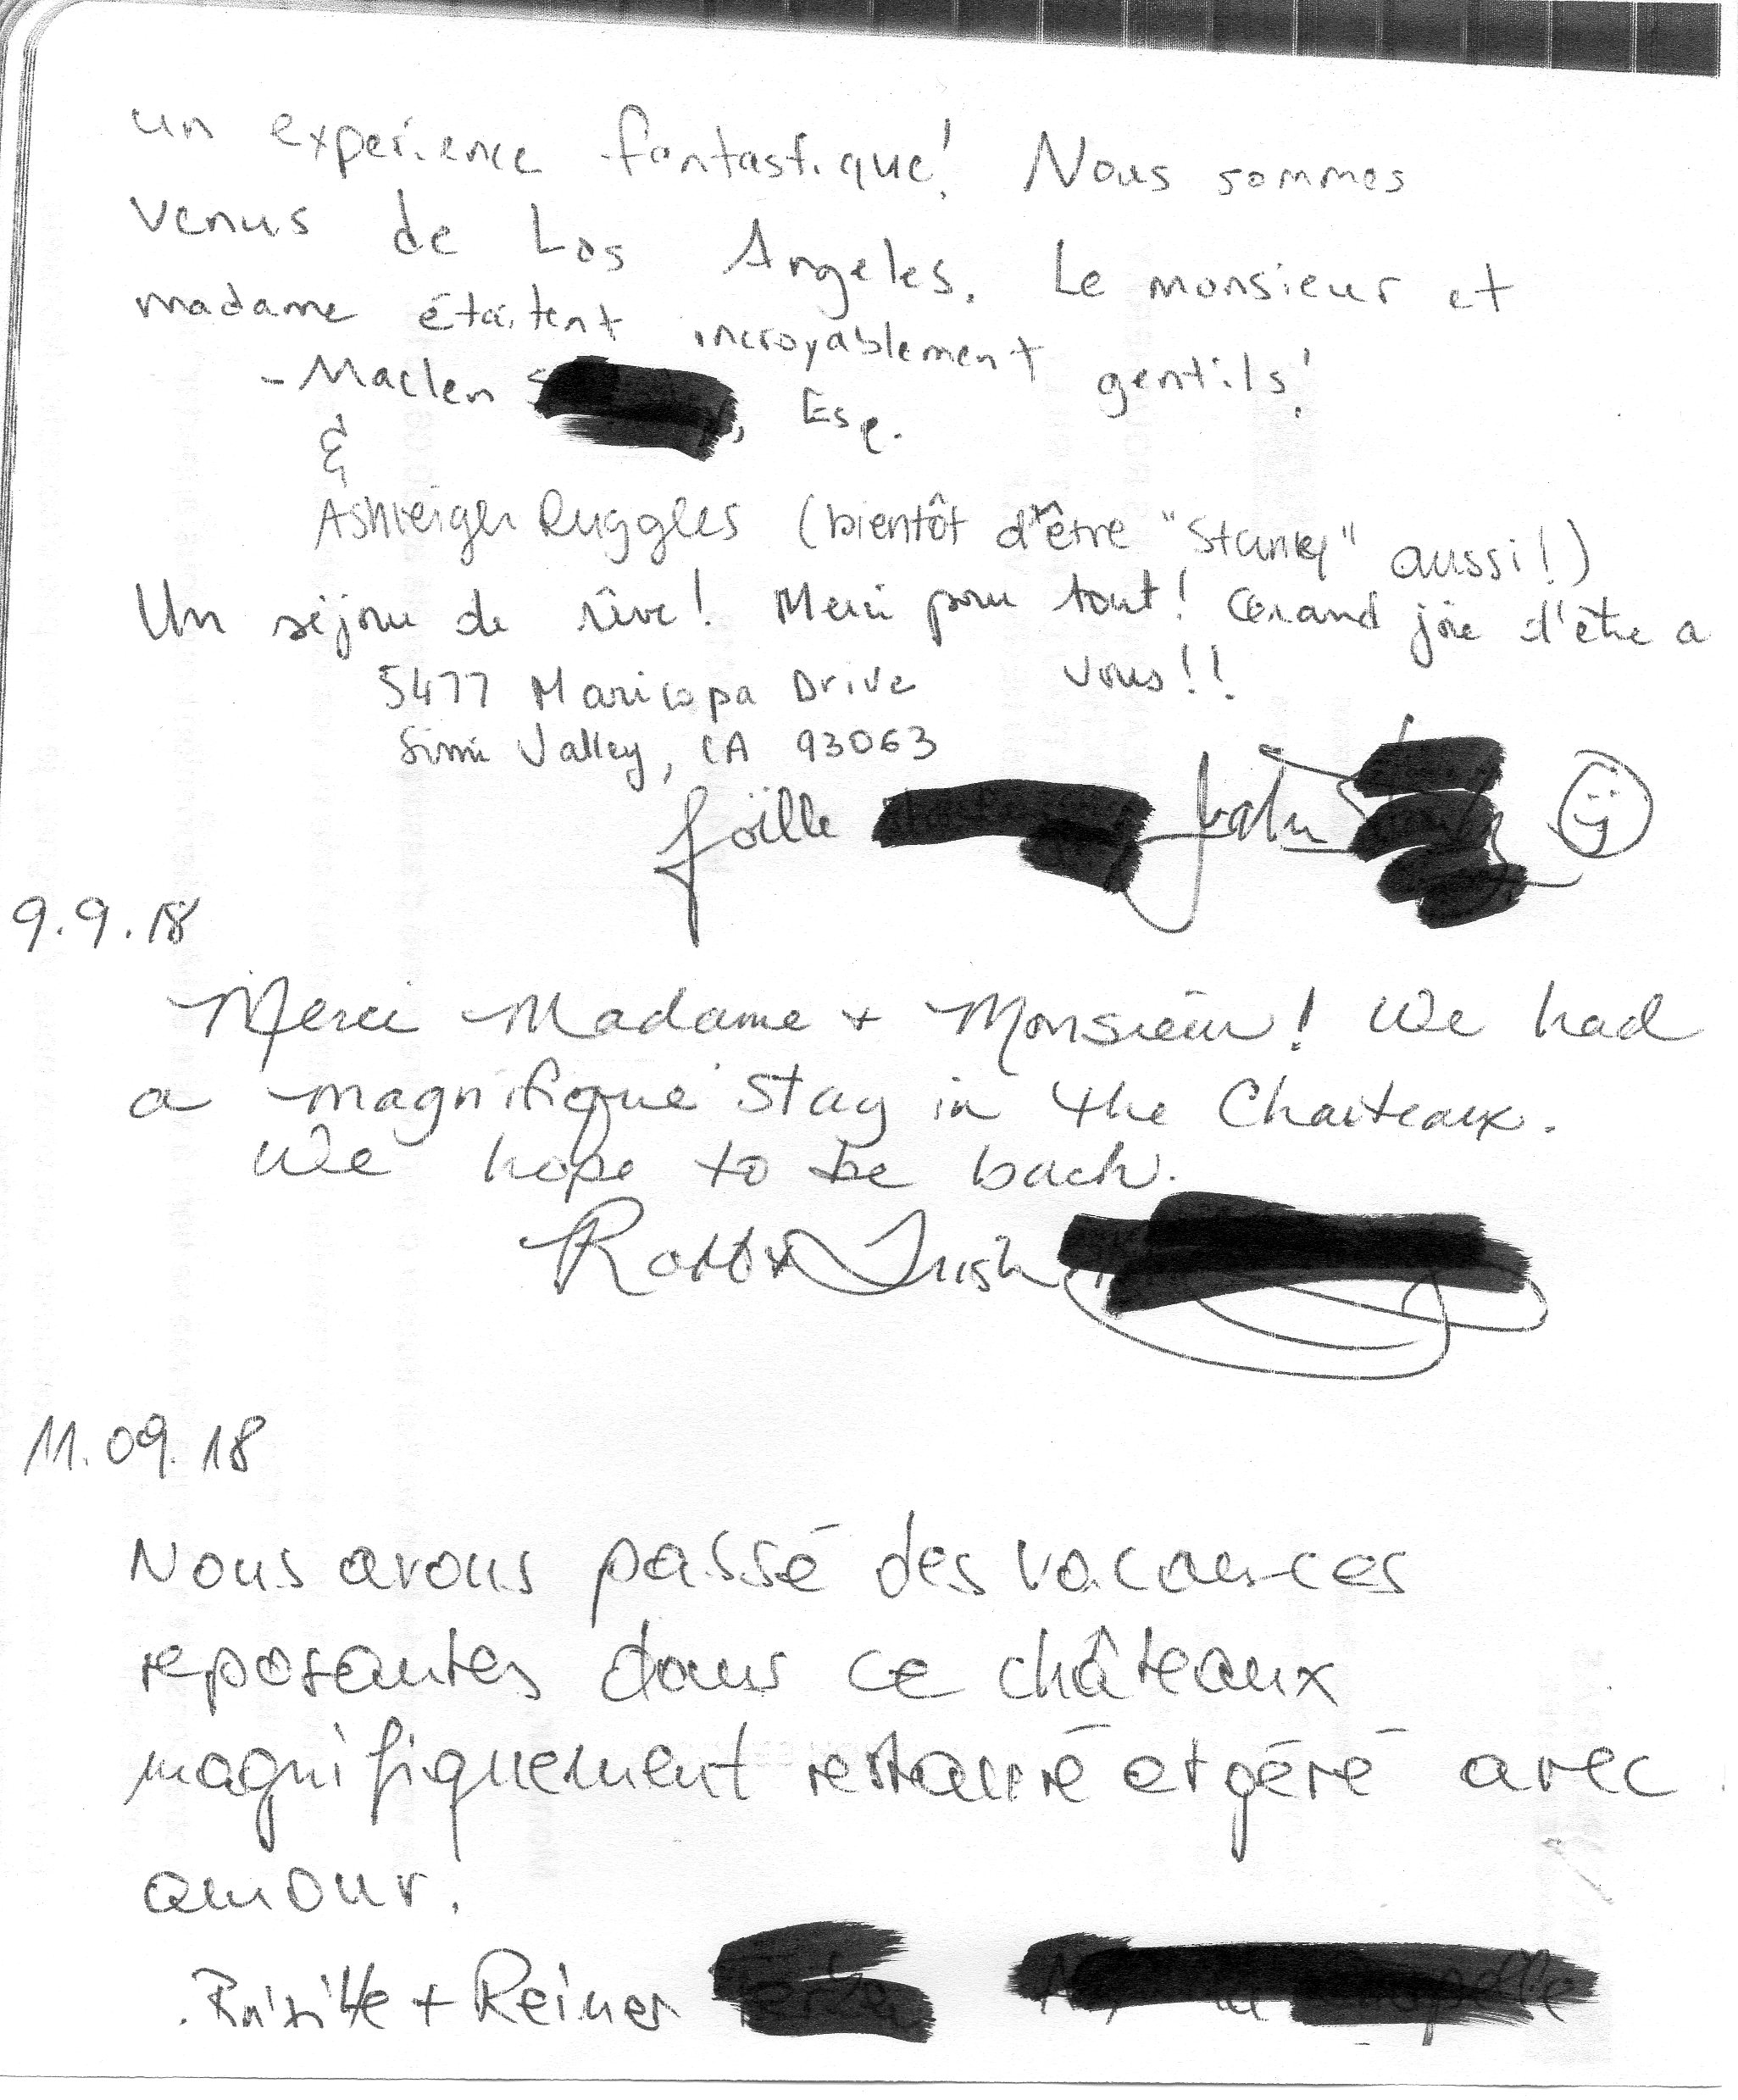 un experience fantastique! Nous sommes
venus de Los Angeles. Le monsieur et
madame étaitent incroyablement gentils!
- Maclen , Esq.
&
Ashleigh Ruggles (bientôt d'être "Stanky" aussi!)
Un séjour de rêve! Merci pour tout! Grand joie d'être a
vous!!
5477 Maricopa Drive
Simi Valley, CA 93063
Joëlle
9.9.18
Merci Madame + Monsieur! We had
a magnifique stay in the Chaiteaux.
We hope to be back.
Robb + Trish
11.09.18
Nous avons passé des vacances
reposantes dans ce châteaux
magnifiquement restauré et géré avec
amour.
+ Reiner